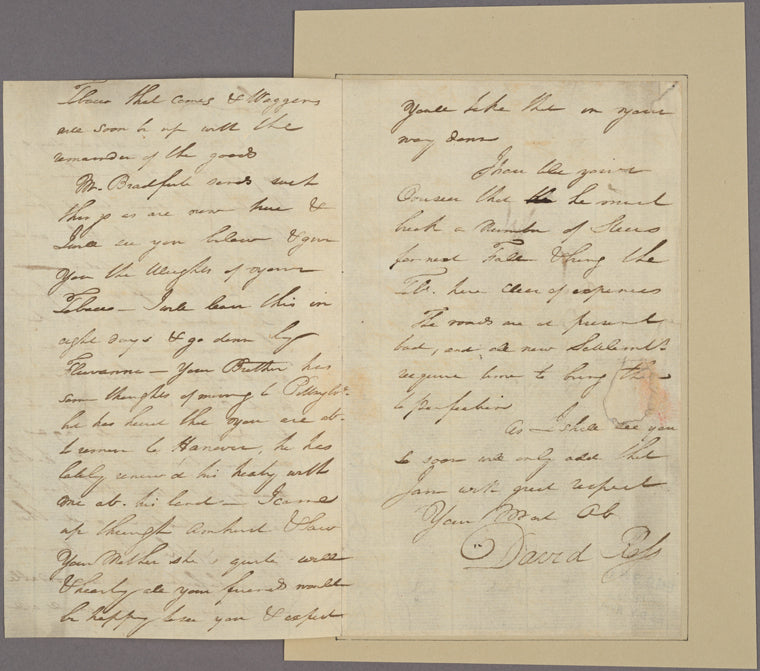 Tobacco that comes & Waggons
will soon be up with the
remainder of the goods
Mr. Bradfute sends such
things as are now here &
I will see you below & give
You the Weights of your
Tobacco — I will leave this in
eight days & go down by
Fluvanna — Your Brother has
som thoughts of moving to
he has heard that you are abt.
to remove to Hanover, he has
lately renew'd his treaty with
me abt. his land — I came
up through Amherst & saw
Your Mother she is quite well
& hearty all your friends would
be happy to see you & expect
Youll take that in your
way down
I have told your
that he must
break a Number of Steers
for next Fall & bring the
Tb. here clear of expences
The roads are at present
bad, and all new Settlemts.
require time to bring them
to perfection
As I shall see you
so soon will only add that
I am with great respect
Your Most Ob
David Ross